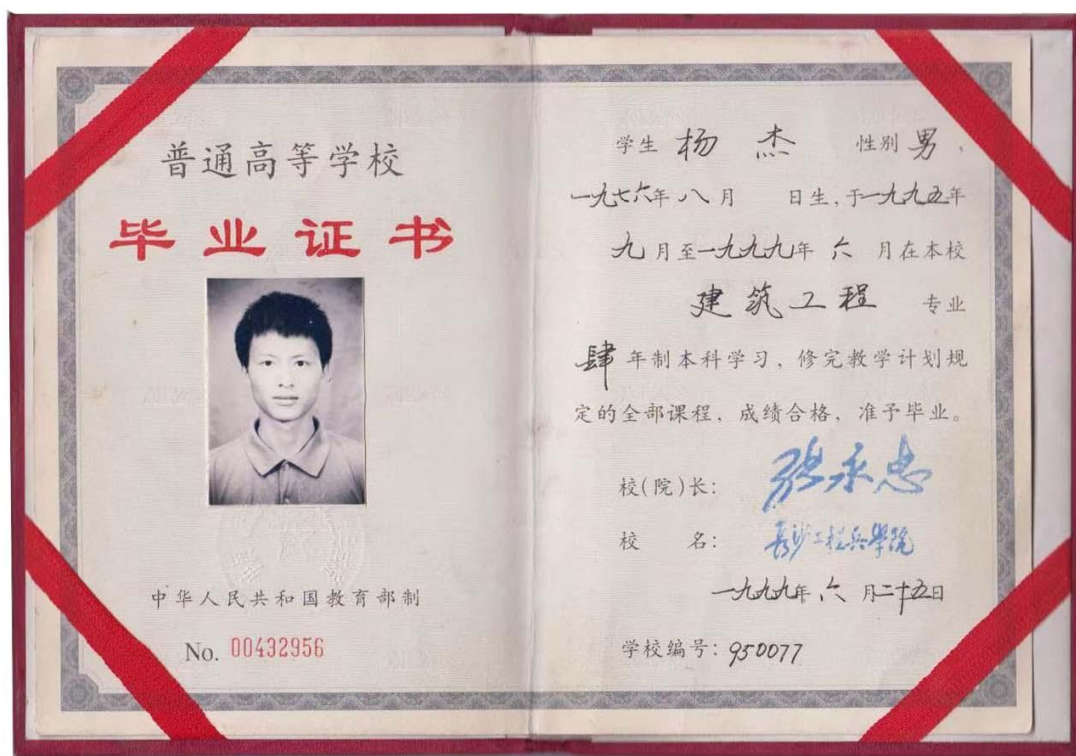 普通高等学校
毕业证书
中华人民共和国教育部制
No. 00432956
学生 杨 杰 性别 男，
一九七六年 八 月 日生，于一九九五年
九 月至一九九九年 六 月在本校
建筑工程 专业
肆 年制本科学习，修完教学计划规
定的全部课程，成绩合格，准予毕业。
校(院)长： 张永忠
校 名： 长沙工程兵學院
一九九九年 六 月二十五日
学校编号：950077